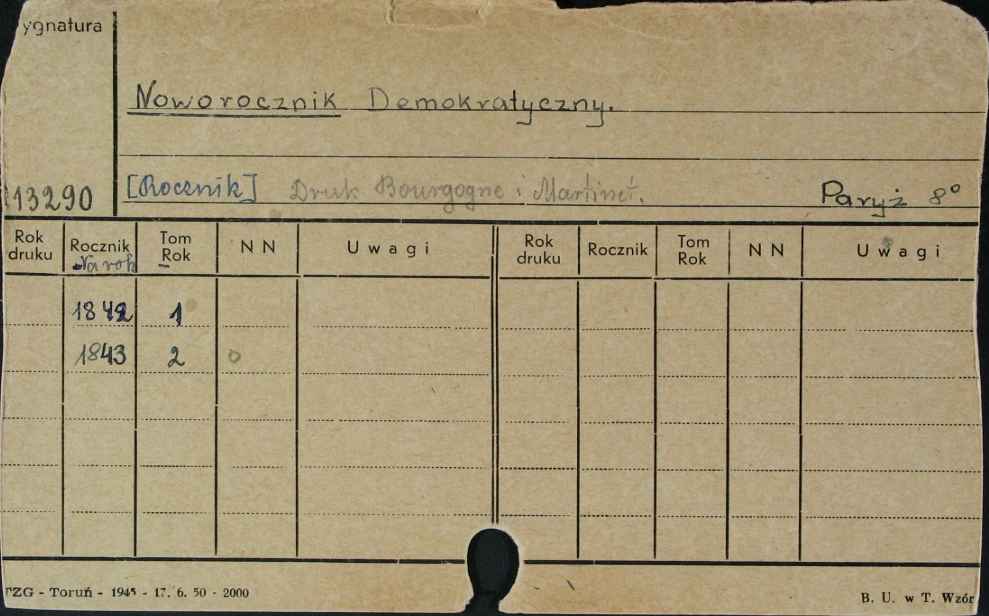 ygnatura
Noworocznik Demokratyczny.
13290 [Rocznik] Druk Bourgogne i Martinet. Paryż 8°
Rok druku Rocznik Na rok Tom Rok N N Uwagi Rok druku Rocznik Tom Rok N N Uwagi
1842 1
1843 2
TZG - Toruń - 1945 - 17. 6. 50 - 2000 B. U. w T. Wzór